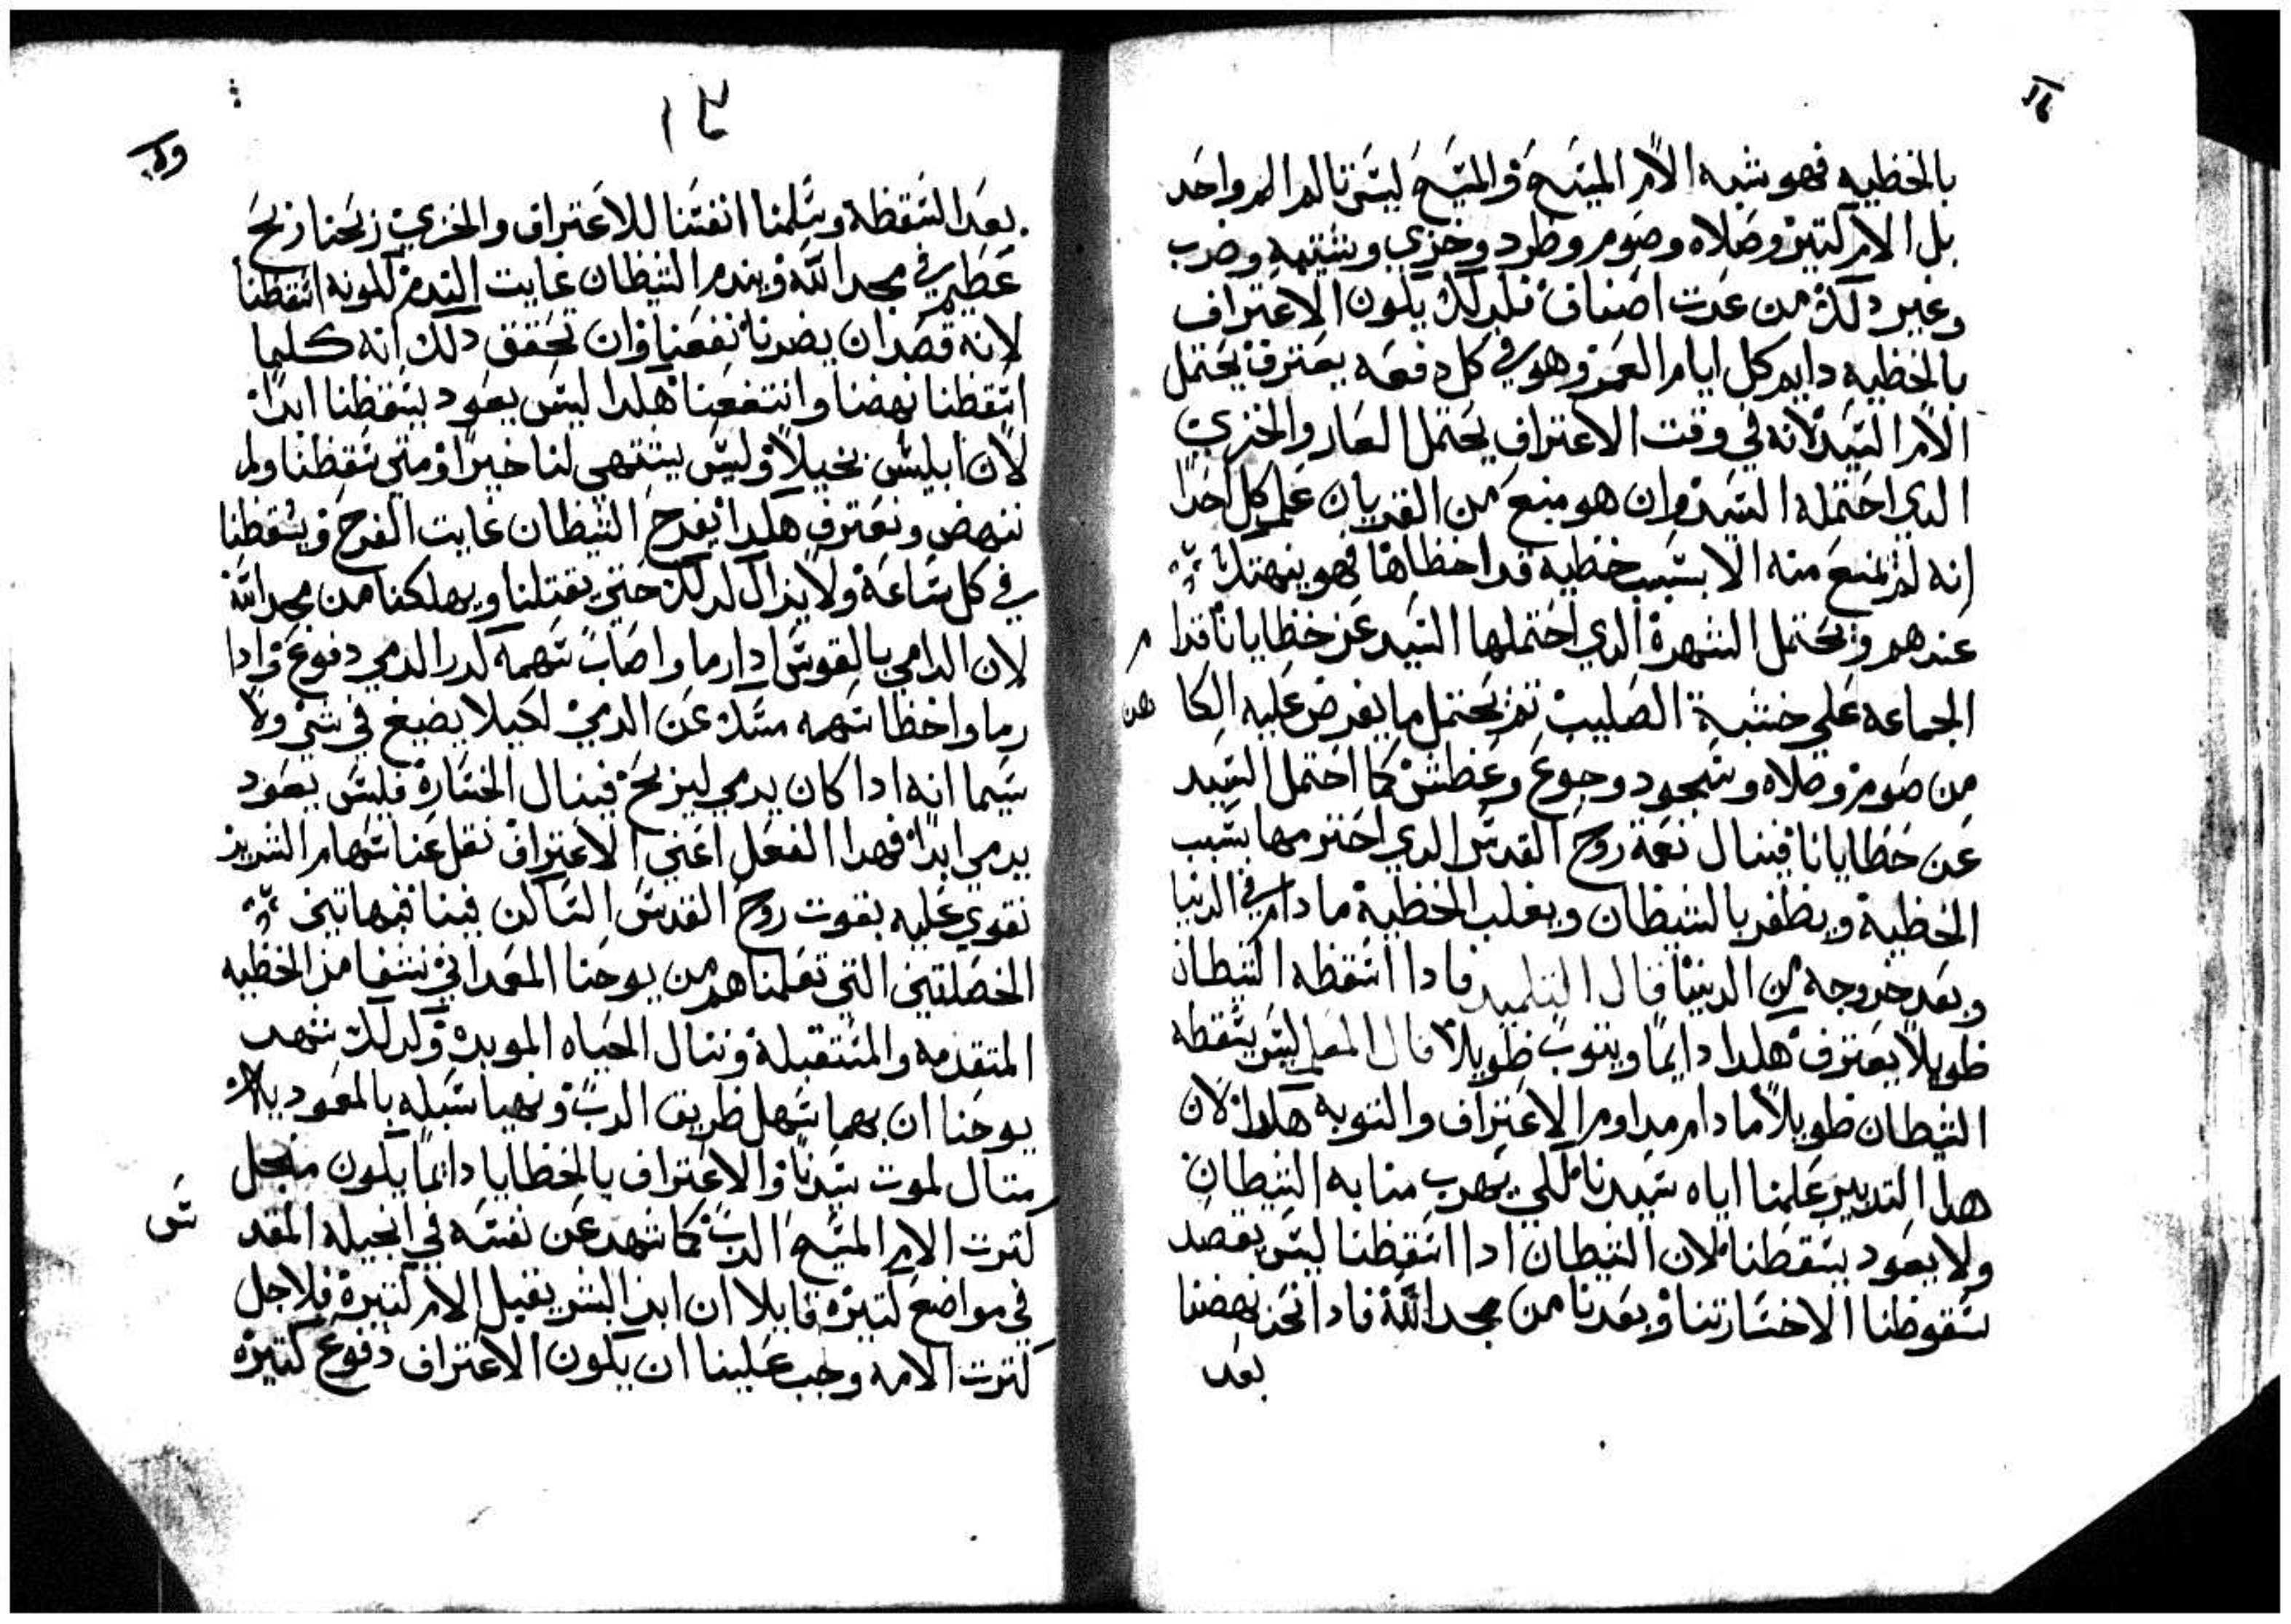 بالخطيه فهو شبه الام المسيح والمسيح ليس تالم الم واحد
بل الام كتير وصلاه وصوم وطرد وخزي وشتيمه وضرب
وغير دلك من عدت اصناف فلدلك يكون الاعتراف
بالخطيه دايم كل ايام العمر وهو في كل دفعه يعترف يحتمل
الام السيد لانه في وقت الاعتراف يحتمل العار والخزي
الدي احتمله السيد وان هو منع من القربان علم كل احدا
انه لم يمنع منه الا بسبب خطيه قد اخطاها فهو ينهتك
عندهم ويحتمل الشهرة الدي احتملها السيد عن خطايانا قدام
الجماعه علي خشبة الصليب تم يحتمل ما يفرض عليه الكاهن
من صوم وصلاه وسجود وجوع وعطش كما احتمل السيد
عن خطايانا فينال نعمة روح القدس الدي احترمها بسبب
الخطية ويظفر بالشيطان ويغلب الخطية ما دام في الدنيا
وبعد خروجه من الدنيا قال التلميد فادا اسقطه الشيطان
طويلا يعترف هكدا دايما ويتوب طويلا قال المعلم ليس يسقطه
الشيطان طويلا ما دام مداوم الاعتراف والتوبه هكدا لان
هدا التدبير علمنا اياه سيدنا لكي يهرب منا به الشيطان
ولا يعود يسقطنا لان الشيطان ادا اسقطنا ليس يقصد
سقوطنا الا خسارتنا وبعدنا من مجد الله فادا نحن نهضنا
بعد
١٣
بعد السقطة وسلمنا انفسنا للاعتراف والخزي ربحنا ربح
عظيم في مجد الله ويندم الشيطان غايت الندم لكونه اسقطنا
لانه قصد ان يضرنا نفعنا وان تحقق دلك انه كلما
اسقطنا نهضنا وانتفعنا هكدا ليس يعود يسقطنا ابدا
لان ابليس بخيلا وليس يشتهي لنا خيرا ومتي سقطنا ولم
ننهض ونعترف هكدا يفرح الشيطان غايت الفرح ويسقطنا
في كل ساعة ولا يزال لدلك حتي يقتلنا ويهلكنا من مجد الله
لان الرامي بالقوس ادا رما واصاب سهمه كرر الرمي دفوع وادا
رما واخطا سهمه مسك عن الرمي لكيلا يضيع في شي ولا
سيما انه ادا كان يرمي ليربح فينال الخسارة فليس يعود
يرمي ابدا فهدا الفعل اعني الاعتراف نقل عنا سهام الشرير
نقوي عليه بقوت روح القدس الساكن فينا فبهاتين
الخصلتين التي تعلمناهم من يوحنا المعمداني نشفا من الخطيه
المتقدمه والمستقبلة وننال الحياه الموبده ولدلك شهد
يوحنا ان بهما سهل طريق الرب وتهيا سبله بالمعموديه لان
متال لموت سيدنا والاعتراف بالخطايا دايما يكون من اجل
كترت الام المسيح الرب كما شهد عن نفسه في انجيله المقدس
في مواضع كتيره قايلا ان ابن البشر يقبل الام كتيرة فلاجل
كترت الامه وجب علينا ان يكون الاعتراف دفوع كتيره